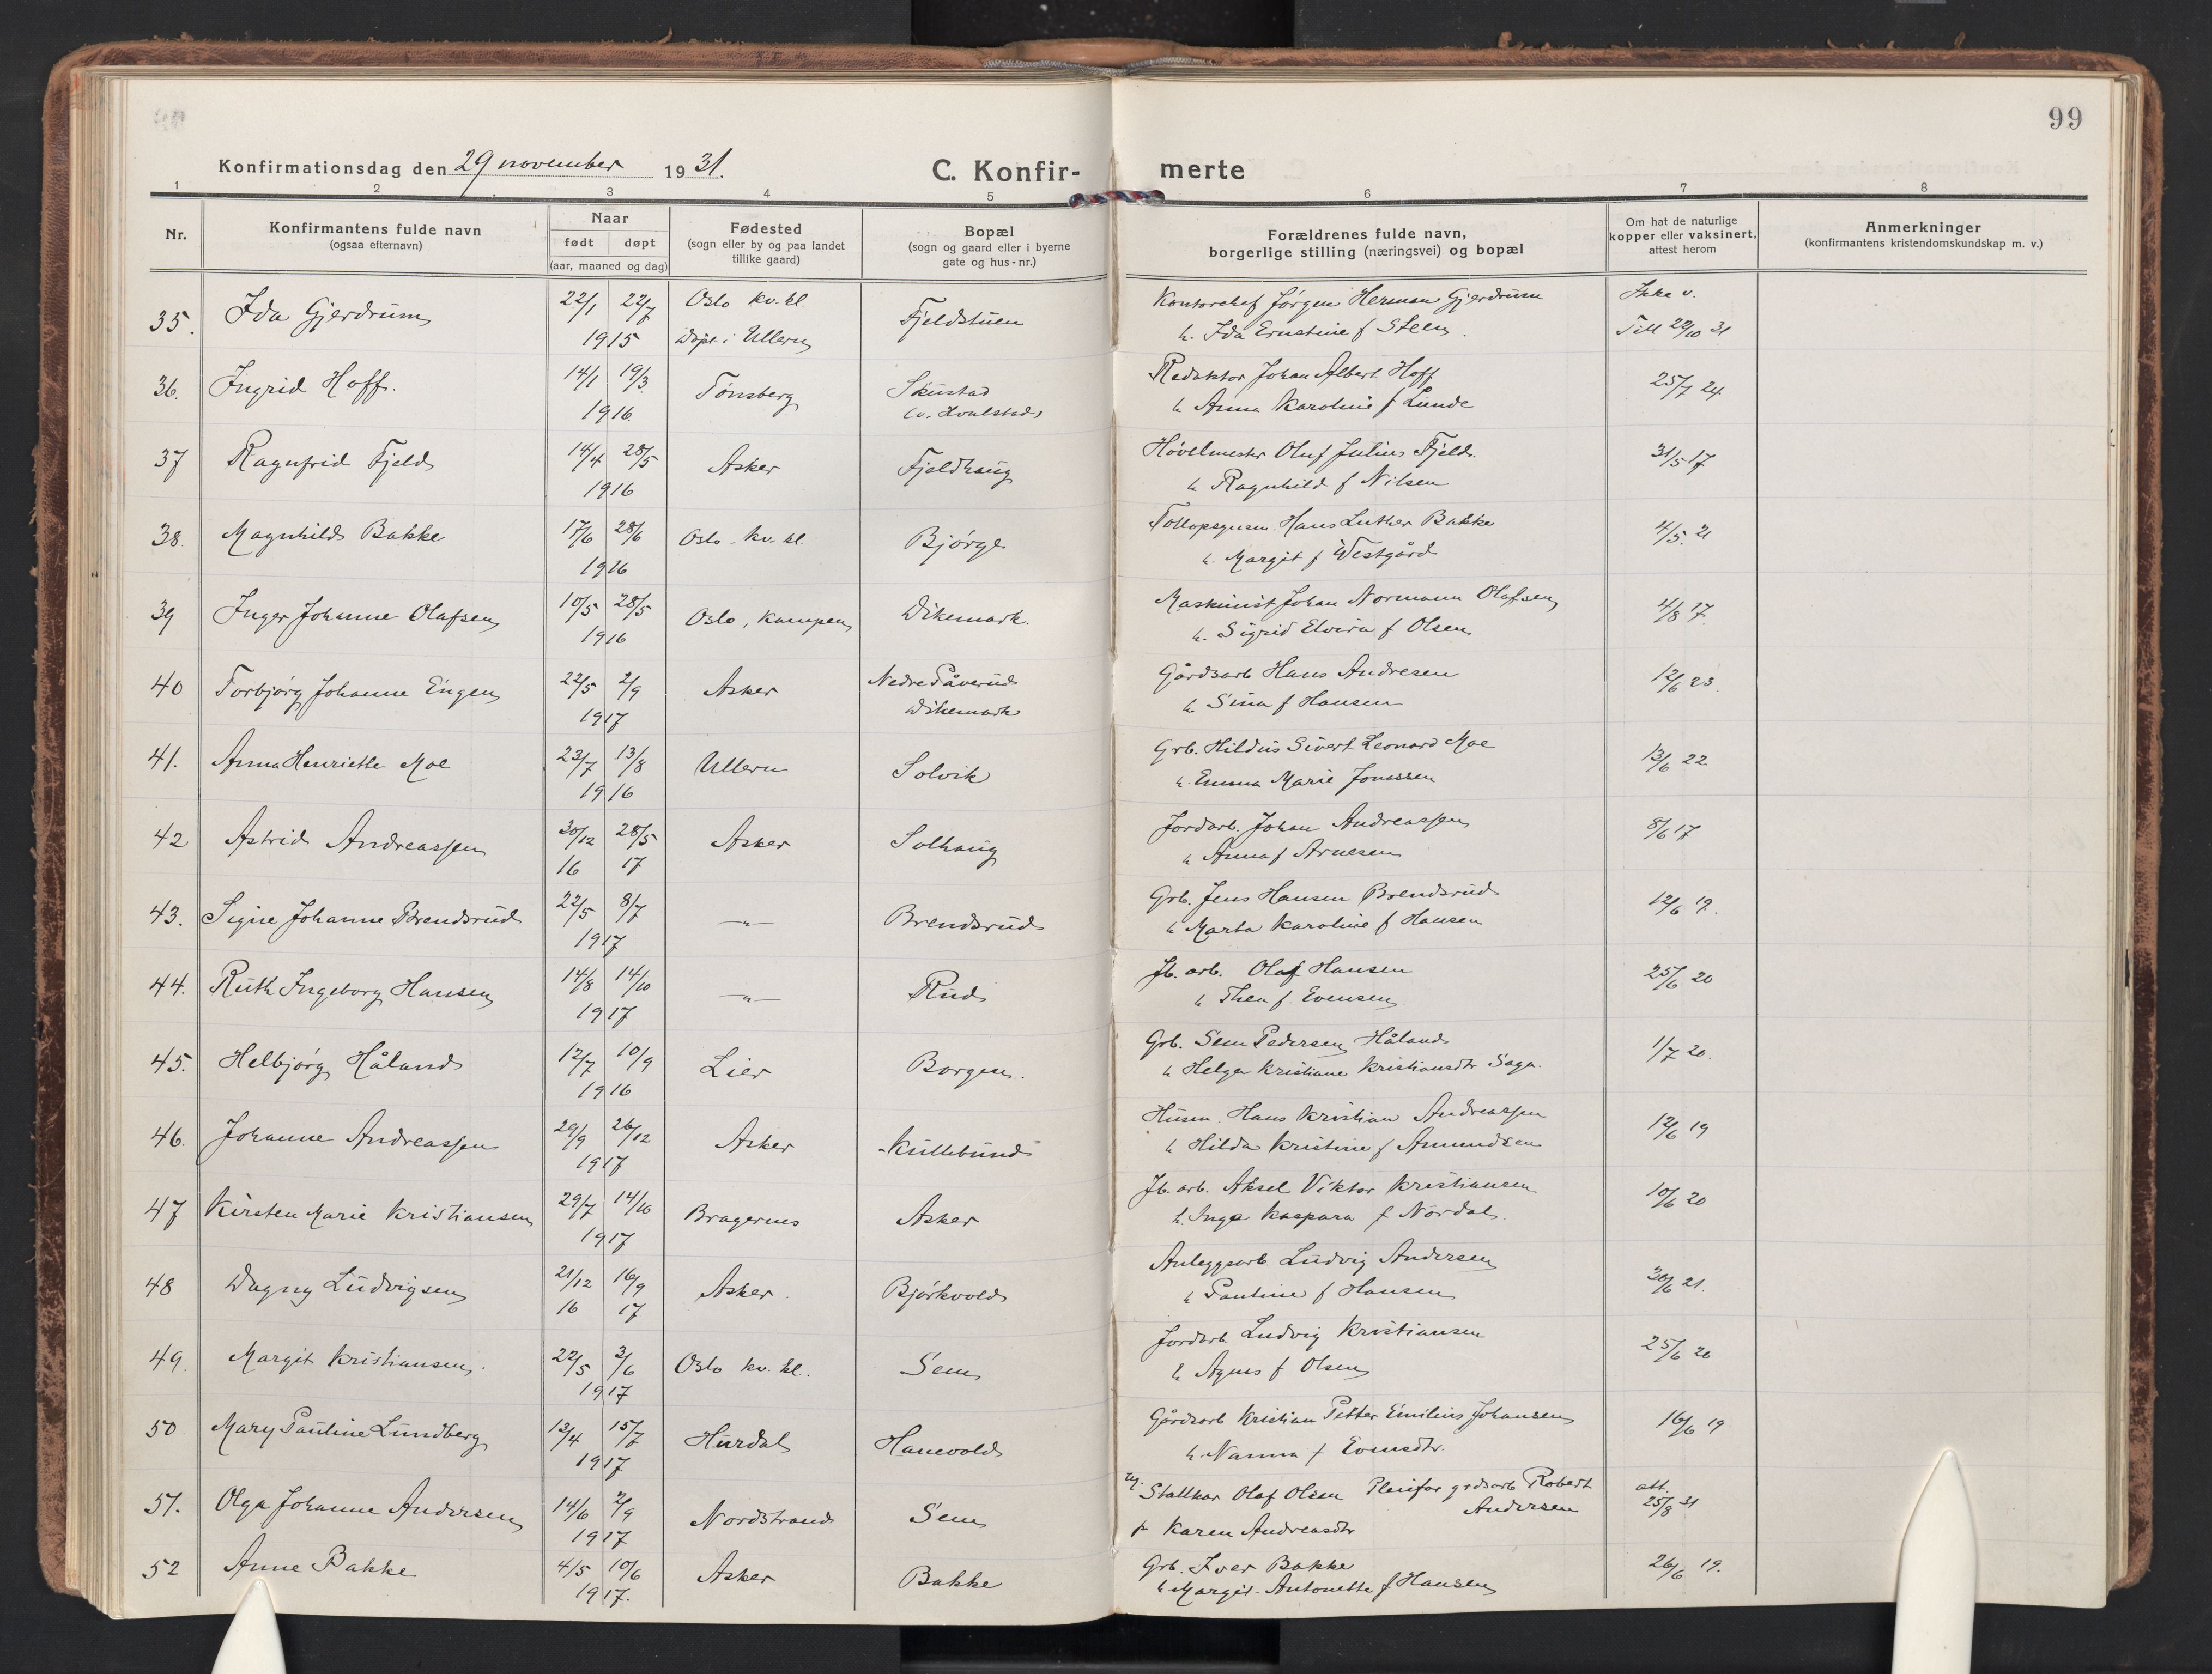 99
Konfirmationsdag den 29 november 1931.
C. Konfir-
merte
1 2 3 4 5 6 7 8
Nr.
Konfirmantens fulde navn
(ogsaa efternavn)
Naar
født døpt
(aar, maaned og dag)
Fødested
(sogn eller by og paa landet
tillike gaard)
Bopæl
(sogn og gaard eller i byerne
gate og hus-nr.)
Forældrenes fulde navn,
borgerlige stilling (næringsvei) og bopæl
Om hat de naturlige
kopper eller vaksinert,
attest herom
Anmerkninger
(konfirmantens kristendomskundskap m. v.)
35. Ida Gjerdrum 22/1 22/7 Oslo kv. kl. Fjeldstuen Kontorchef Jørgen Herman Gjerdrum Ikke v.
1915 Døpt i Ullern h. Ida Ernstine f Steen. Till 22/10 31
36. Ingrid Hoff. 14/1 19/3 Tønsberg Skustad Redaktør Johan Albert Hoff 25/7 24
1916. (v. Hvalstad) h Anna Karoline f Lunde
37 Ragnfrid Fjeld 14/4 28/5 Asker Fjeldhaug Høvelmester Oluf Julius Fjeld. 31/5 17
1916 h Ragnhild f Nilsen
38. Magnhild Bakke 17/6 28/6 Oslo kv. kl. Bjørge Hans Luther Bakke 4/5. 21
1916 h. Margit f Westgård
39 Inger Johanne Olafsen 10/5 28/5 Oslo, Kampen Dikemark. Maskinist Johan Normann Olafsen 4/8 17.
1916 h. Sigrid Elvira f Olsen
40 Torbjørg Johanne Engen 22/5 2/9 Asker Nedre Påverud Gårdsarb Hans Andresen 12/6 23.
1917 Dikemark h Sina f Hansen
41. Anna Henriette Moe 23/7 13/8 Ullern Solvik Grb. Hildus Sivert Leonard Moe 13/6 22
1916 h. Emma Marie Jonassen
42 Astrid Andreassen 30/12 28/5 Asker Solhaug Jordarb. Johan Andreassen 8/6 17
16 17 h Anna f Arnesen
43. Signe Johanne Brendsrud 22/5 8/7 —"— Brendsrud Grb. Jens Hansen Brendsrud 12/6 19.
1917 h Marta Karoline f Hansen
44. Ruth Ingeborg Hansen 14/8 14/10 —"— Rud Jb. arb. Olaf Hansen 25/6 20
1917 h Thea f. Evensen
45. Helbjørg Håland 12/7 10/9 Lier Borgen. Grb. Sem Pedersen Håland 1/7 20.
1916 h Helga Kristiane Kristiansdtr Saga.
46. Johanne Andreassen 29/9 26/12 Asker Kullebund Husm. Hans Kristian Andreassen 12/6 19
1917 h Hilda Kristine f Amundsen
47 Kirsten Marie Kristiansen 29/7 14/10 Bragernes Asker Jb. arb. Aksel Viktor Kristiansen 10/6 20
1917 h. Inga Kaspara f Nordal.
48 Dagny Ludvigsen 21/12 16/9 Asker. Bjørkvold Anleggsarb Ludvig Andersen 30/6 21.
16 17 h Pauline f Hansen
49. Margit Kristiansen. 22/5 3/6 Oslo kv. kl. Sem Jordarb. Ludvig Kristiansen 25/6 20
1917 h Agnes f Olsen
50 Mary Pauline Lundberg 13/4 15/7 Hurdal Hanevold Gårdsarb Kristian Petter Emilius Johansen 16/6 19
1917 h. Nanna f Evensdtr.
51. Olga Johanne Andersen 14/6 2/9 Nordstrand Sem Stallkar Olaf Olsen Pleiefar grdsarb Robert Andersen att. 25/8 31
1917 f Karen Andreasdtr
52 Anne Bakke 4/5 10/6 Asker Bakke Grb. Iver Bakke 26/6 19.
1917. h Margit Antonette f Hansen